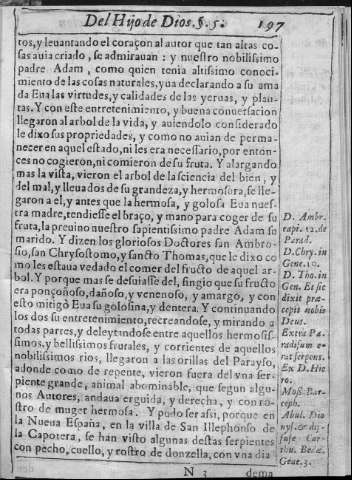 Del Hijo de Dios. §. 5. 197
tos, y leuantando el coraçon al autor que tan altas co-
sas auia criado, se admirauan: y nuestro nobilissimo
padre Adam, como quien tenia altissimo conoci-
miento de las cosas naturales, yua declarando a su ama
da Eua las virtudes, y calidades de las yeruas, y plan-
tas. Y con este entretenimiento, y buena conuersacion
llegaron al arbol de la vida, y auiendolo considerado
le dixo sus propriedades, y como no auian de perma-
necer en aquel estado, ni les era necessario, por enton-
ces no cogieron, ni comieron de su fruta. Y alargando
mas la vista, vieron el arbol de la sciencia del bien, y
del mal, y lleuados de su grandeza, y hermosura, se lle-
garon a el, y antes que la hermosa, y golosa Eua nues-
tra madre, tendiesse el braço, y mano para coger de su
fruta, la preuino nuestro sapientissimo padre Adam su
marido. Y dizen los gloriosos Doctores san Ambro-
sio, san Chrysostomo, y sancto Thomas, que le dixo co
mo les estaua vedado el comer del fructo de aquel ar-
bol. Y porque mas se desuiasse del, fingio que su fructo
era ponçoñoso, dañoso, y venenoso, y amargo, y con
esto mitigò Eua su golosina, y dentera. Y continuando
los dos su entretenimiento, recreandose, y mirando a
todas partes, y deleytandose entre aquellos hermosis-
simos, y bellissimos frutales, y corrientes de aquellos
nobilissimos rios, llegaron a las orillas del Parayso,
adonde como de repente, vieron fuera del vna ser-
piente grande, animal abominable, que segun algu-
nos Autores, andaua erguida, y derecha, y con ro-
stro de muger hermosa. Y pudo ser assi, porque en
la Nueua España, en la villa de San Illephonso de
la Capotera, se han visto algunas destas serpientes
con pecho, cuello, y rostro de donzella, con vna dia
N 3 dema
D. Ambr.
rapi. 12. de
Parad.
D. Chry. in
Gene. 10.
D. Tho. in
Gen. Et sic
dixit præ-
cepit nobis
Deus.
Extra Pa-
radisum e-
rat serpens.
Ex D. Hie
ro.
Abul. Dio